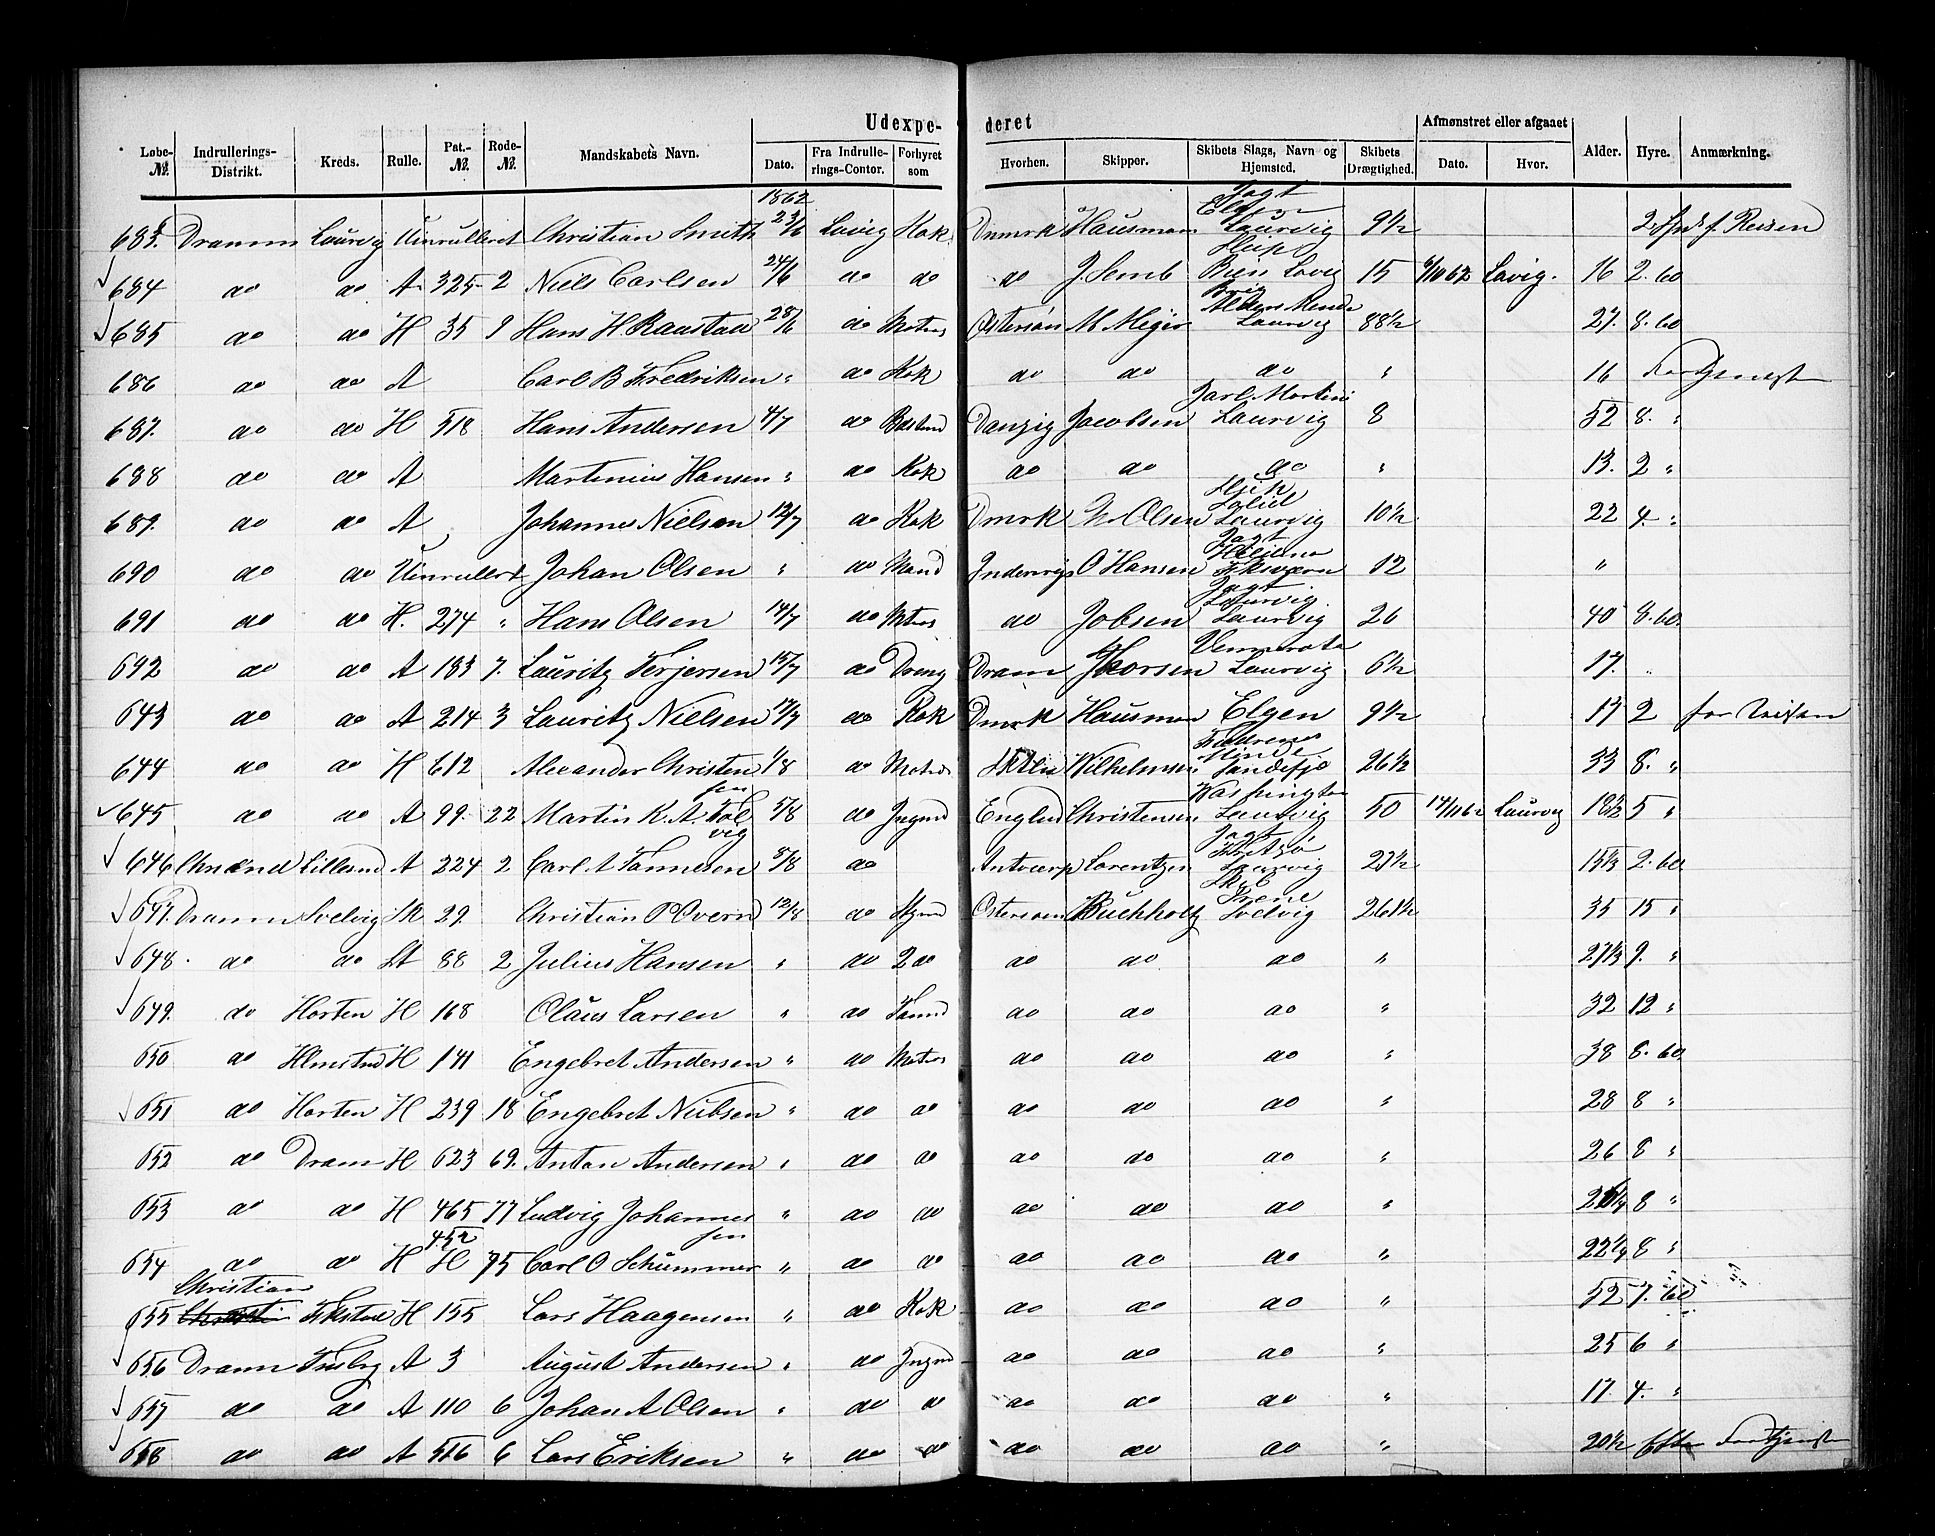 Udexpe- deret
Løbe-№. Indrullerings-Distrikt. Kreds. Rulle. Pat.-№. Rode-№. Mandskabets Navn. Dato. Fra Indrullerings-Contor. Forhyret som Hvorhen. Skipper. Skibets Slags, Navn og Hjemsted. Skibets Drægtighed. Afmønstret eller afgaaet Dato. Hvor. Alder. Hyre. Anmærkning.
1862 Jagt
683. Dramm Laurvig Uinrulleret Christian Smith 23/6 Lvig Kok Dnmrk Hausman Laurvig 9½ 2 Spd f. Reisen
684 do do A 325 2 Niels Carlsen 24/6 do do do J. Semb Bien Lavig 15 6/10 62 Lavig. 16 2. 60
685 do do H 35 9 Hans H Raustad 28/6 do Matros Østersøn M Meyer Brig Laurvig 88½ 27. 8. 60
686 do do A Carl B Fredriksen " do Kok do do do " 16
687. do do H 518 Hans Andersen 4/7 do Danzig Jacobsen Laurvig 8 52 8. "
688 do do A Martinius Hansen " do Kok do do do " 13. 2 "
689. do do A Johannes Nielsen 12/7 do Kok Dmrk Olsen Solid Laurvig 10½ 22 4. "
690 do do Uinrullert Johan Olsen " do Mand O Hansen Jagt 12 "
691 do do H. 274 " Hans Olsen 14/7 do Mtros do Jobsen Jagt Laurvig Laurvig 26 40 8. 60
692 do do A 183 7. Lauritz Terjersen 15/7 do Dreng Dram Laurvig 6½ 17. "
643 do do A 214 3 Lauritz Nielsen do Kok Dmrk Hausman Elgen 9½ 17 2 for Reisen
644 do do H 612 Alexander Christensen 1/8 do Matros Wilhelmsen Fædrenes Minde Sandefjo 26½ 33 8. "
645 do do A 99. 22 Martin K. A. Tolvig 5/8 do Jngmd Englnd Christensen Washington Laurvig 50 Laurvig 18½ 5 "
646 Lillesnd A 224 2 Carl A Tønnesen 8/8 do Antwerp Lorentzen Jagt Laurvig 27½ 15½ 2. 60
647. Dramm Svelvig St 29 Christian P Overn 12/8 do Stymd Østersøen Buchholtz Irene Svelvig 261½ 35 15 "
648. do do St 88 2 Julius Hansen " do 2 do do do do " 9. "
649. do Horten H 168 Olaus Larsen " do Tømmd do do do " 32 12 "
650 do Hlmestnd H 141 Engebret Andersen " do Matros do do do " 38 8. 60
651 do Horten H 239 18 Engebret Nielsen " do do do do do " 28 8 "
652 do Dram H 623 69. Anton Andersen " do do do do do " 26 8 "
653 do do H 465 77 Ludvig Johannessen " do do do do do " 8 "
452
654 do do H 75 Carl O Schummer " do do do do do " 8 "
Christian
655 Fkstad H 155 Lars Haagensen " do Kok do do do " 52 7. 60
656 Dramm Tnsbrg A 3 August Andersen " do Jngmd do do do " 25 6 "
657 do do A 110 6 Johan A Olsen " do do do do do " 17. 4. "
658 do do A 516 6 Lars Eriksen " do do do do do " 20½ Efter Fortjeneste